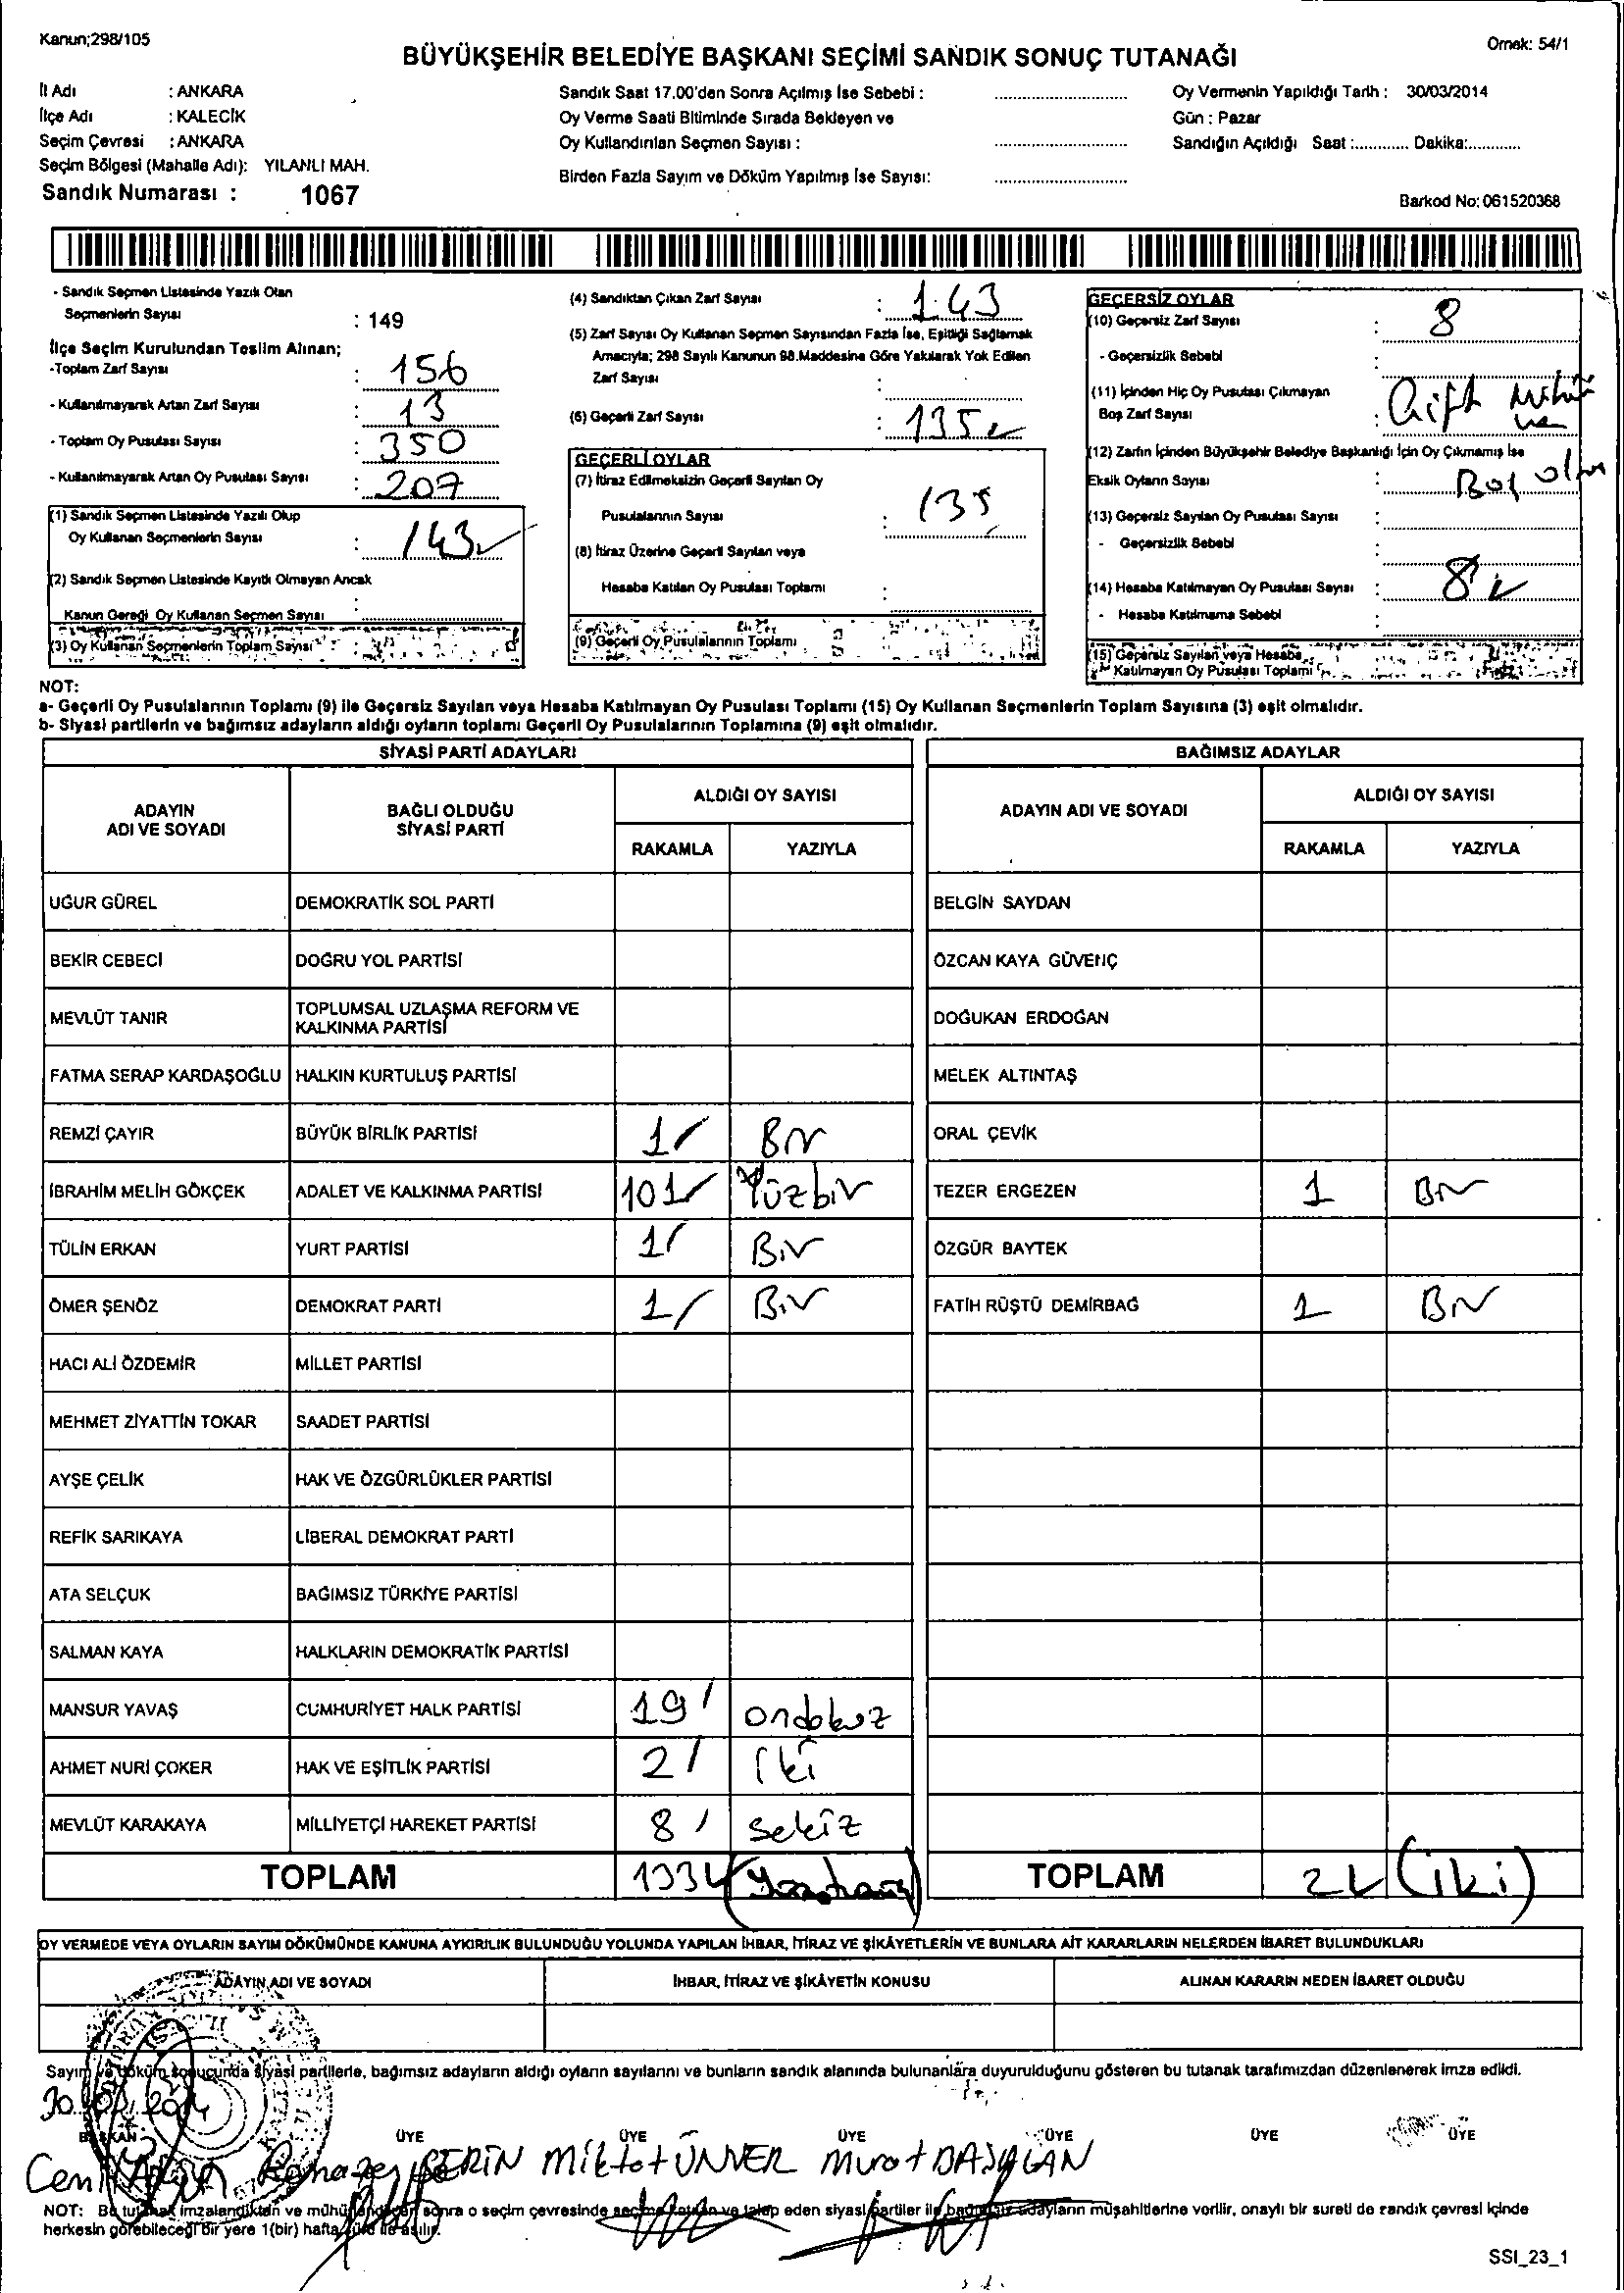 Kanun;298/105
Örnek: 54/1
BÜYÜKŞEHİR BELEDİYE BAŞKANI SEÇİMİ SANDIK SONUÇ TUTANAĞI
İl Adı : ANKARA
İlçe Adı : KALECİK
Seçim Çevresi : ANKARA
Seçim Bölgesi (Mahalle Adı): YILANLI MAH.
Sandık Numarası : 1067
Sandık Saat 17.00'den Sonra Açılmış İse Sebebi :
Oy Verme Saati Bitiminde Sırada Bekleyen ve
Oy Kullandırılan Seçmen Sayısı :
Birden Fazla Sayım ve Döküm Yapılmış İse Sayısı:
Oy Vermenin Yapıldığı Tarih : 30/03/2014
Gün : Pazar
Sandığın Açıldığı Saat :............ Dakika:............
Barkod No: 061520368
- Sandık Seçmen Listesinde Yazılı Olan
Seçmenlerin Sayısı : 149
İlçe Seçim Kurulundan Teslim Alınan;
-Toplam Zarf Sayısı : 156
- Kullanılmayarak Artan Zarf Sayısı : 13
- Toplam Oy Pusulası Sayısı : 350
- Kullanılmayarak Artan Oy Pusulası Sayısı : 207
(1) Sandık Seçmen Listesinde Yazılı Olup
Oy Kullanan Seçmenlerin Sayısı : 143
(2) Sandık Seçmen Listesinde Kayıtlı Olmayan Ancak
Kanun Gereği Oy Kullanan Seçmen Sayısı :
(3) Oy Kullanan Seçmenlerin Toplam Sayısı :
(4) Sandıktan Çıkan Zarf Sayısı : 143
(5) Zarf Sayısı Oy Kullanan Seçmen Sayısından Fazla İse, Eşitliği Sağlamak
Amacıyla; 298 Sayılı Kanunun 98.Maddesine Göre Yakılarak Yok Edilen
Zarf Sayısı :
(6) Geçerli Zarf Sayısı : 135
GEÇERLİ OYLAR
(7) İtiraz Edilmeksizin Geçerli Sayılan Oy
Pusulalarının Sayısı : 135
(8) İtiraz Üzerine Geçerli Sayılan veya
Hesaba Katılan Oy Pusulası Toplamı :
(9) Geçerli Oy Pusulalarının Toplamı :
GEÇERSİZ OYLAR
(10) Geçersiz Zarf Sayısı : 8
- Geçersizlik Sebebi :
(11) İçinden Hiç Oy Pusulası Çıkmayan
Boş Zarf Sayısı : Çift
(12) Zarfın İçinden Büyükşehir Belediye Başkanlığı İçin Oy Çıkmamış İse
Eksik Oyların Sayısı : Boş
(13) Geçersiz Sayılan Oy Pusulası Sayısı :
- Geçersizlik Sebebi :
(14) Hesaba Katılmayan Oy Pusulası Sayısı : 8
- Hesaba Katılmama Sebebi :
(15) Geçersiz Sayılan veya Hesaba
Katılmayan Oy Pusulası Toplamı
NOT:
a- Geçerli Oy Pusulalarının Toplamı (9) ile Geçersiz Sayılan veya Hesaba Katılmayan Oy Pusulası Toplamı (15) Oy Kullanan Seçmenlerin Toplam Sayısına (3) eşit olmalıdır.
b- Siyasi partilerin ve bağımsız adayların aldığı oyların toplamı Geçerli Oy Pusulalarının Toplamına (9) eşit olmalıdır.
SİYASİ PARTİ ADAYLARI
ADAYIN ADI VE SOYADI
BAĞLI OLDUĞU SİYASİ PARTİ
ALDIĞI OY SAYISI
RAKAMLA YAZIYLA
UĞUR GÜREL DEMOKRATİK SOL PARTİ
BEKİR CEBECİ DOĞRU YOL PARTİSİ
MEVLÜT TANIR TOPLUMSAL UZLAŞMA REFORM VE KALKINMA PARTİSİ
FATMA SERAP KARDAŞOĞLU HALKIN KURTULUŞ PARTİSİ
REMZİ ÇAYIR BÜYÜK BİRLİK PARTİSİ 1 Bir
İBRAHİM MELİH GÖKÇEK ADALET VE KALKINMA PARTİSİ 101 Yüzbir
TÜLİN ERKAN YURT PARTİSİ 1 Bir
ÖMER ŞENÖZ DEMOKRAT PARTİ 1 Bir
HACI ALİ ÖZDEMİR MİLLET PARTİSİ
MEHMET ZİYATTİN TOKAR SAADET PARTİSİ
AYŞE ÇELİK HAK VE ÖZGÜRLÜKLER PARTİSİ
REFİK SARIKAYA LİBERAL DEMOKRAT PARTİ
ATA SELÇUK BAĞIMSIZ TÜRKİYE PARTİSİ
SALMAN KAYA HALKLARIN DEMOKRATİK PARTİSİ
MANSUR YAVAŞ CUMHURİYET HALK PARTİSİ 19 ondokuz
AHMET NURİ ÇOKER HAK VE EŞİTLİK PARTİSİ 2 iki
MEVLÜT KARAKAYA MİLLİYETÇİ HAREKET PARTİSİ 8 sekiz
TOPLAM 133
BAĞIMSIZ ADAYLAR
ADAYIN ADI VE SOYADI
ALDIĞI OY SAYISI
RAKAMLA YAZIYLA
BELGİN SAYDAN
ÖZCAN KAYA GÜVENÇ
DOĞUKAN ERDOĞAN
MELEK ALTINTAŞ
ORAL ÇEVİK
TEZER ERGEZEN 1 Bir
ÖZGÜR BAYTEK
FATİH RÜŞTÜ DEMİRBAĞ 1 Bir
TOPLAM 2 (iki)
OY VERMEDE VEYA OYLARIN SAYIM DÖKÜMÜNDE KANUNA AYKIRILIK BULUNDUĞU YOLUNDA YAPILAN İHBAR, İTİRAZ VE ŞİKÂYETLERİN VE BUNLARA AİT KARARLARIN NELERDEN İBARET BULUNDUKLARI
ADAYIN ADI VE SOYADI
İHBAR, İTİRAZ VE ŞİKÂYETİN KONUSU
ALINAN KARARIN NEDEN İBARET OLDUĞU
Sayım ve döküm sonucunda siyasi partilerle, bağımsız adayların aldığı oyların sayılarını ve bunların sandık alanında bulunanlara duyurulduğunu gösteren bu tutanak tarafımızdan düzenlenerek imza edildi.
BAŞKAN ÜYE ÜYE ÜYE ÜYE ÜYE ÜYE
Ramazan SERİN Miktat ÜNVER Murat
NOT: Bu tutanak imzalandıktan ve mühürlendikten sonra o seçim çevresinde seçime katılan ve takip eden siyasi partiler ile bağımsız adayların müşahitlerine verilir, onaylı bir sureti de sandık çevresi içinde
herkesin görebileceği bir yere 1(bir) hafta süre ile asılır.
SSI_23_1